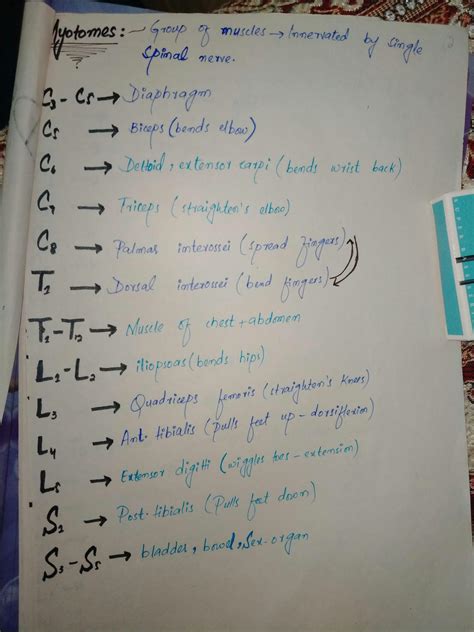 Myotomes:- Group of muscles → Innervated by single
spinal nerve.
C3-C5 → Diaphragm
C5 → Biceps (bends elbow)
C6 → Deltoid, extensor carpi (bends wrist back)
C7 → Triceps (straighten's elbow)
C8 → Palmar interossei (spread fingers)
T1 → Dorsal interossei (bend fingers)
T1-T12 → Muscle of chest + abdomen
L1-L2 → iliopsoas (bends hips)
L3 → Quadriceps femoris (straighten's knees)
L4 → Ant. tibialis (pulls feet up-dorsiflexion)
L5 → Extensor digiti (wiggles toes-extension)
S2 → Post. tibialis (Pulls feet down)
S3-S5 → bladder, bowel, Sex-organ